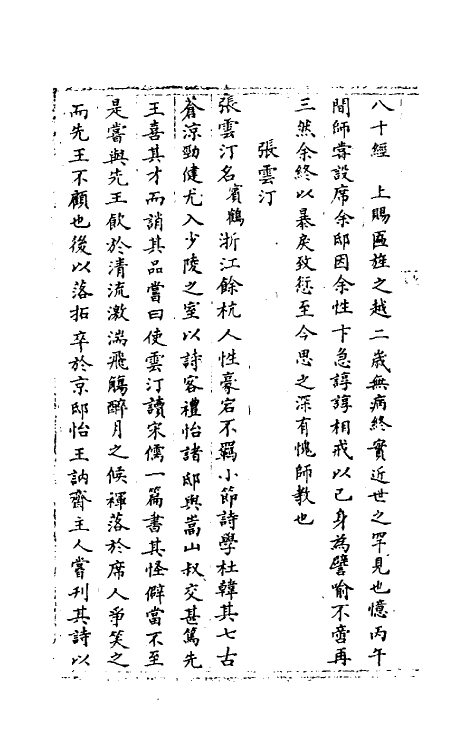 八十經　上賜匾旌之越二歲無病終實近世之罕見也憶丙午
間師嘗設席余邸因余性卞急諄諄相戒以已身為譬喻不啻再
三然余終以暴戾致愆至今思之深有愧師教也
張雲汀
張雲汀名賓鶴浙江餘杭人性豪宕不羈小節詩學杜韓其七古
蒼涼勁健尤入少陵之室以詩客禮怡諸邸與嵩山叔交甚篤先
王喜其才而誚其品嘗曰使雲汀讀宋儒一篇書其怪僻當不至
是嘗與先王飲於清流激湍飛觴醉月之候褌落於席人爭笑之
而先王不顧也後以落拓卒於京邸怡王訥齋主人嘗刊其詩以